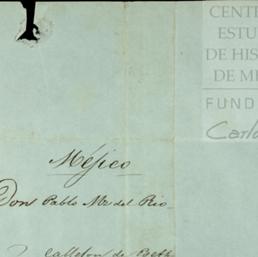 CENT
ESTU
DE HIS
DE M
FUND
Carlo
Méjico
Don Pablo Mz del Rio
Callejon de Betl